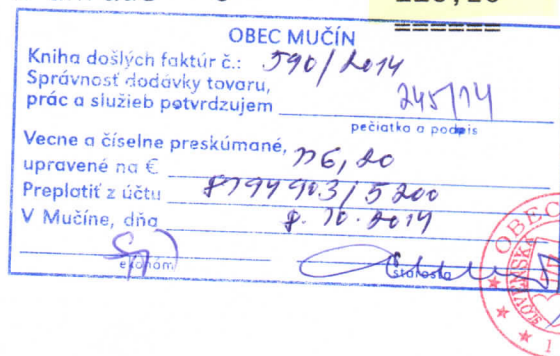 ======
OBEC MUČÍN
Kniha došlých faktúr č.: 590/2014
Správnosť dodávky tovaru,
prác a služieb potvrdzujem 245/14
pečiatka a podpis
Vecne a číselne preskúmané,
upravené na € 116,20
Preplatiť z účtu 8794903/5200
V Mučíne, dňa 8. 10. 2014
ekonóm starosta
OBEC